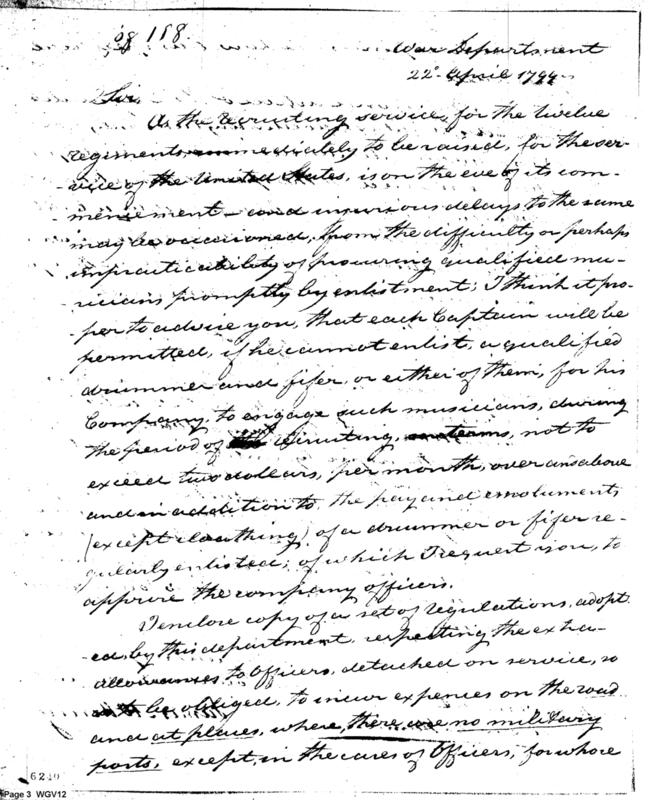 og 188.
War Department
22d. April 1799
Sir,
As the recruiting service, for the twelve
regiments, immediately to be raised, for the ser-
vice of the United States, is on the eve of its com-
mencement – and injurious delays to the same
may be occasioned, from the difficulty or perhaps
impracticability of procuring qualified mu-
sicians promptly by enlistment; I think it pro-
per to advise you, that each Captain will be
permitted, if he cannot enlist, a qualified
drummer and fifer, or either of them, for his
Company, to engage such musicians, during
the period of recruiting, on terms, not to
exceed two dollars, per month, over and above
and in addition to, the pay and emoluments
(except cloathing) of a drummer or fifer re-
gularly enlisted; of which I request you, to
apprize the company officers.
I enclose copy of a set of regulations, adopt
ed, by this department, respecting the extra
allowances to Officers, detached on service, so
as to be obliged, to incur expences on the road
and at places, where, there are no military
posts, except, in the cases of Officers, for whose
6240
Page 3 WGV12